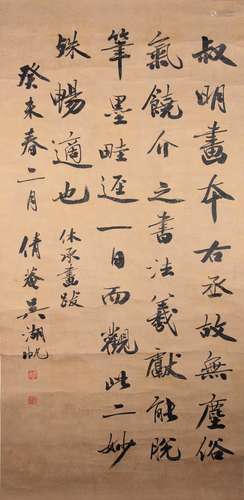 叔明畫本右丞故無塵俗
氣饒介之書法羲獻能脫
筆墨畦逕一日而觀此二妙
殊暢適也
休承畫跋
癸未春二月 倩菴吳湖帆